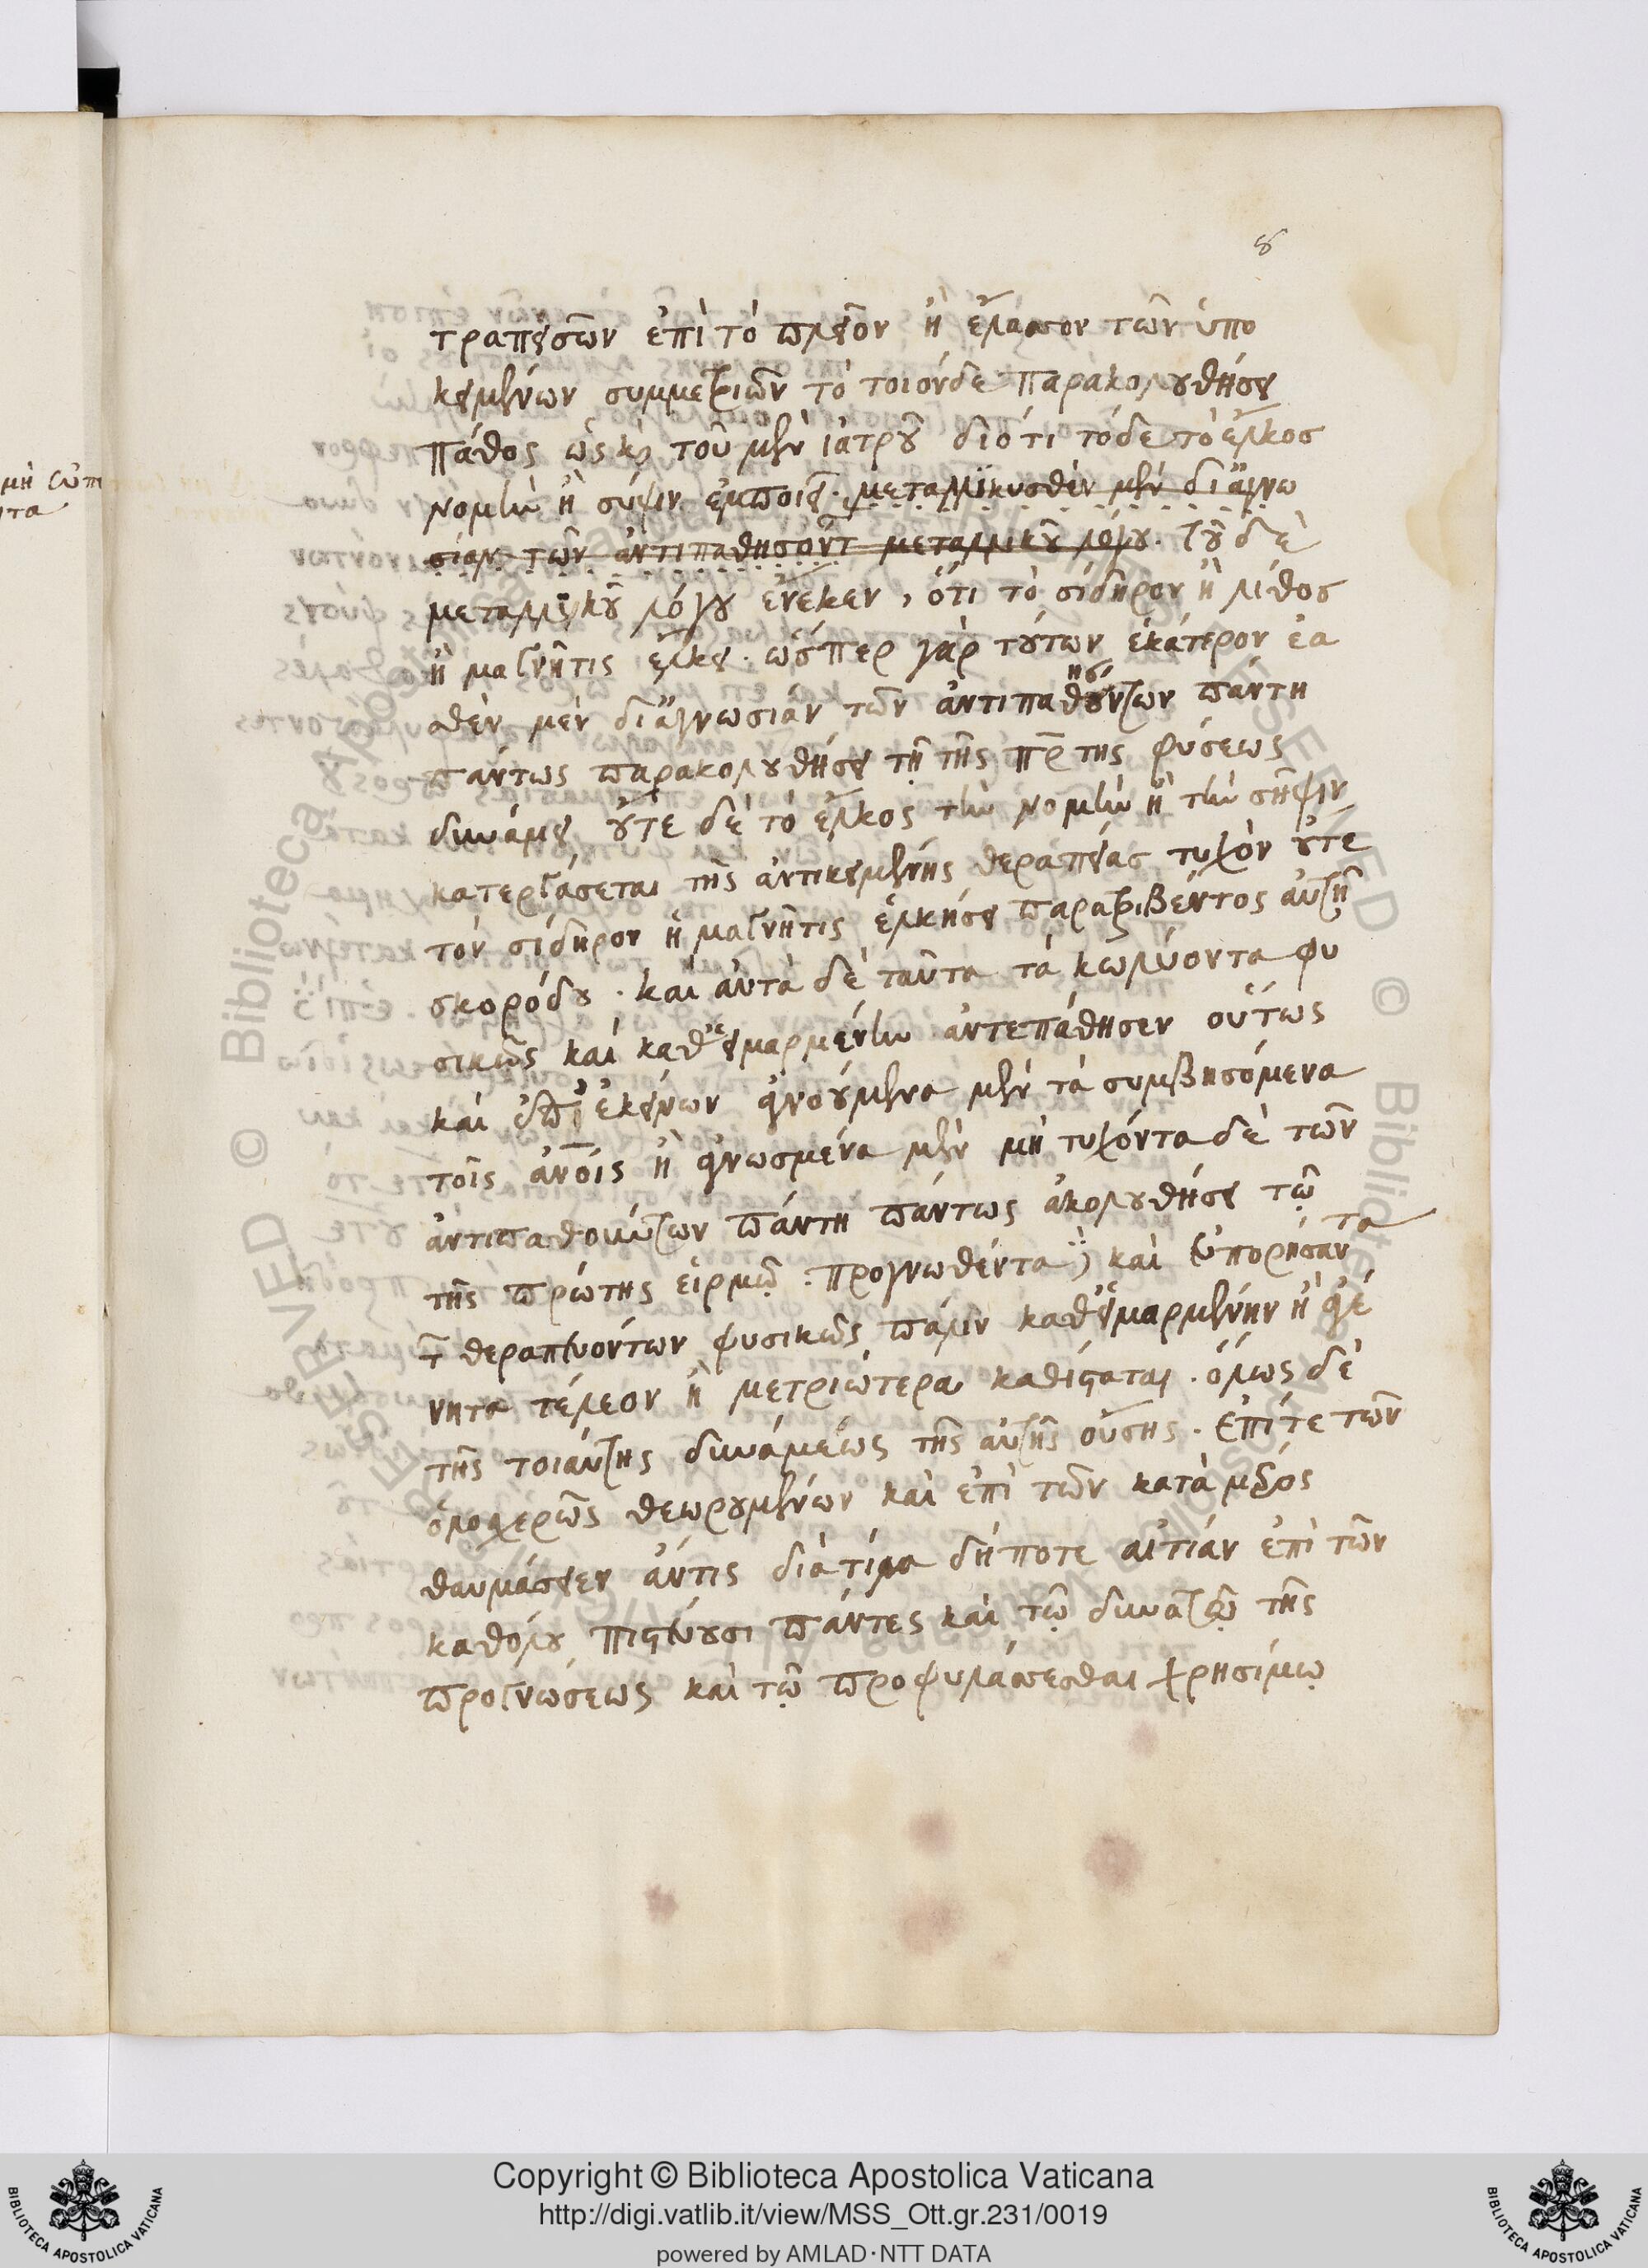 8
τραπεισῶν ἐπὶ τὸ πλεῖον ἢ ἔλασσον τῶν ὑπο
κειμένων συμμετριῶν τὸ τοιόνδε παρακολουθήσει
πάθος ὡς καὶ τοῦ μὲν ἰατροῦ διότι τόδε τὸ ἕλκος
νομὴν ἢ σύψιν ἐμποιεῖ. μεταλλικυσθὲν μὲν δι' ἄγνω
σίαν τῶν ἀντιπαθησόντ μεταλλικοῦ λόγου. τοῦ δὲ
μεταλλικοῦ λόγου ἕνεκεν, ὅτι τὸ σίδηρον ἡ λίθος
ἡ μαγνῆτις ἕλκει. ὥσπερ γὰρ τούτων ἑκάτερον ἐα
θὲν μὲν δι' ἀγνωσίαν τῶν ἀντιπαθησόντων πάντη
πάντως παρακολουθήσει τῇ τῆς πρτης φύσεως
δυνάμει οὔτε δὲ τὸ ἕλκος τὴν νομὴν ἢ τὴν σῆψιν
κατεργάσεται τῆς ἀντικειμένης θεραπείας τυχὸν οὔτε
τὸν σίδηρον ἡ μαγνῆτις ἑλκήσει παρατριβέντος αὐτῇ
σκορόδου. καὶ αὐτὰ δὲ ταῦτα τὰ κωλύοντα φυ
σικῶς καὶ καθ' εἱμαρμένην ἀντεπάθησεν οὕτως
καὶ ἐπὶ ἐκείνων ἀγνοούμενα μὲν τὰ συμβησόμενα
τοῖς ἀνοις ἢ ἐγνωσμένα μὲν μὴ τυχόντα δὲ τῶν
ἀντιπαθούντων πάντη πάντως ἀκολουθήσει τῷ
τῆς πρώτης εἱρμῷ. προγνωθέντα καὶ εὐπορήσαντα
τ θεραπευόντων φυσικῶς πάλιν καθ' εἱμαρμένην ἢ ἀγέ
νητα τέλεον ἢ μετριώτερα καθίσταται. ὅλως δὲ
τῆς τοιαύτης δυνάμεως τῆς αὐτῆς οὔσης. ἐπί τε τῶν
ὁλοσχερῶς θεωρουμένων καὶ ἐπὶ τῶν κατὰ μέρος
θαυμάσειεν ἄν τις διὰ τίνα δήποτε αἰτίαν ἐπὶ τῶν
καθόλου πιστεύουσι πάντες καὶ τῷ δυνατῷ τῆς
προγνώσεως καὶ τῷ προφυλάσσεσθαι χρησίμῳ
Copyright © Biblioteca Apostolica Vaticana
http://digi.vatlib.it/view/MSS_Ott.gr.231/0019
powered by AMLAD·NTT DATA